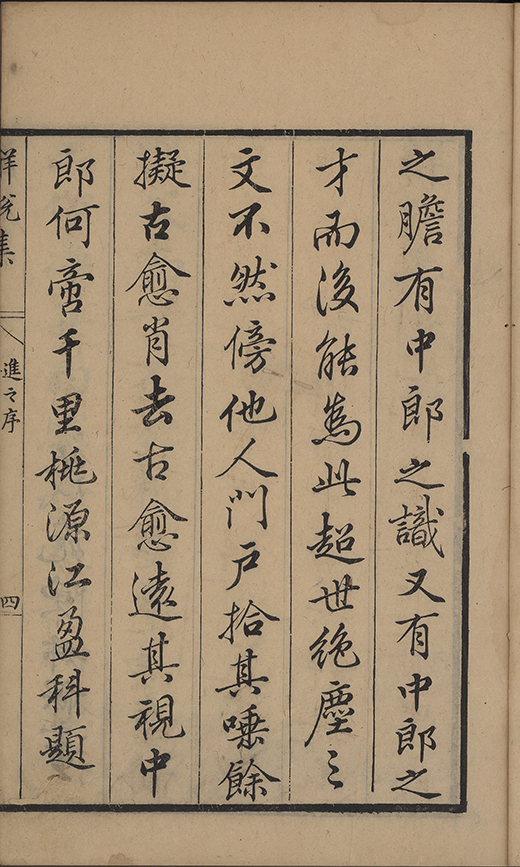 之膽有中郎之識又有中郎之
才而後能為此超世絶塵之
文不然傍他人門戶拾其唾餘
擬古愈肖去古愈遠其視中
郎何啻千里桃源江盈科題
進之序
四